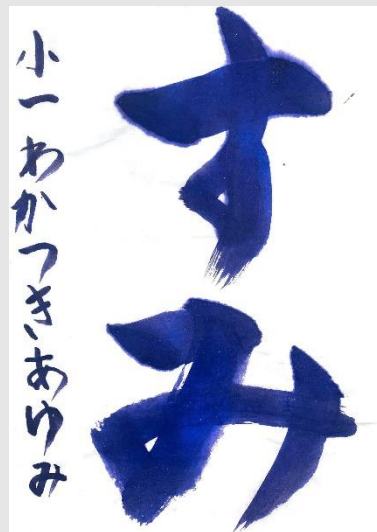 すみ
小一わかつきあゆみ